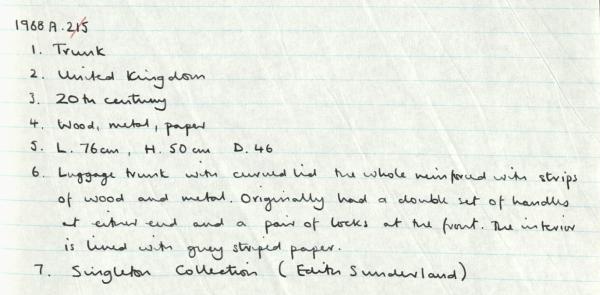 1968 A.215
1. Trunk
2. United Kingdom
3. 20th century
4. Wood, metal, paper
5. L. 76cm, H. 50cm D. 46
6. Luggage trunk with curved lid the whole reinforced with strips
of wood and metal. Originally had a double set of handles
at either end and a pair of locks at the front. The interior
is lined with grey striped paper.
7. Singleton Collection (Edith Sunderland)